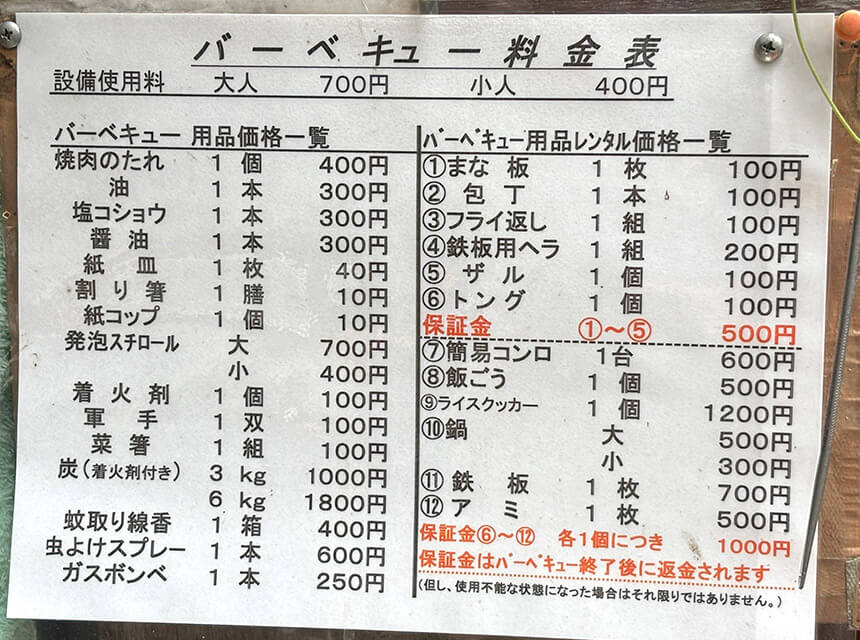 バーベキュー料金表
設備使用料 大人 700円 小人 400円
バーベキュー 用品価格一覧
焼肉のたれ 1 個 400円
油 1 本 300円
塩コショウ 1 本 300円
醤油 1 本 300円
紙皿 1 枚 40円
割り箸 1 膳 10円
紙コップ 1 個 10円
発泡スチロール 大 700円
小 400円
着火剤 1 個 100円
軍手 1 双 100円
菜箸 1 組 100円
炭(着火剤付き) 3 kg 1000円
6 kg 1800円
蚊取り線香 1 箱 400円
虫よけスプレー 1 本 600円
ガスボンベ 1 本 250円
バーベキュー用品レンタル価格一覧
①まな板 1 枚 100円
②包丁 1 本 100円
③フライ返し 1 組 100円
④鉄板用ヘラ 1 組 200円
⑤ザル 1 個 100円
⑥トング 1 個 100円
保証金 ①~⑤ 500円
⑦簡易コンロ 1台 600円
⑧飯ごう 1 個 500円
⑨ライスクッカー 1 個 1200円
⑩鍋 大 500円
小 300円
⑪鉄板 1 枚 700円
⑫アミ 1 枚 500円
保証金⑥~⑫ 各1個につき 1000円
保証金はバーベキュー終了後に返金されます
(但し、使用不能な状態になった場合はそれ限りではありません。)